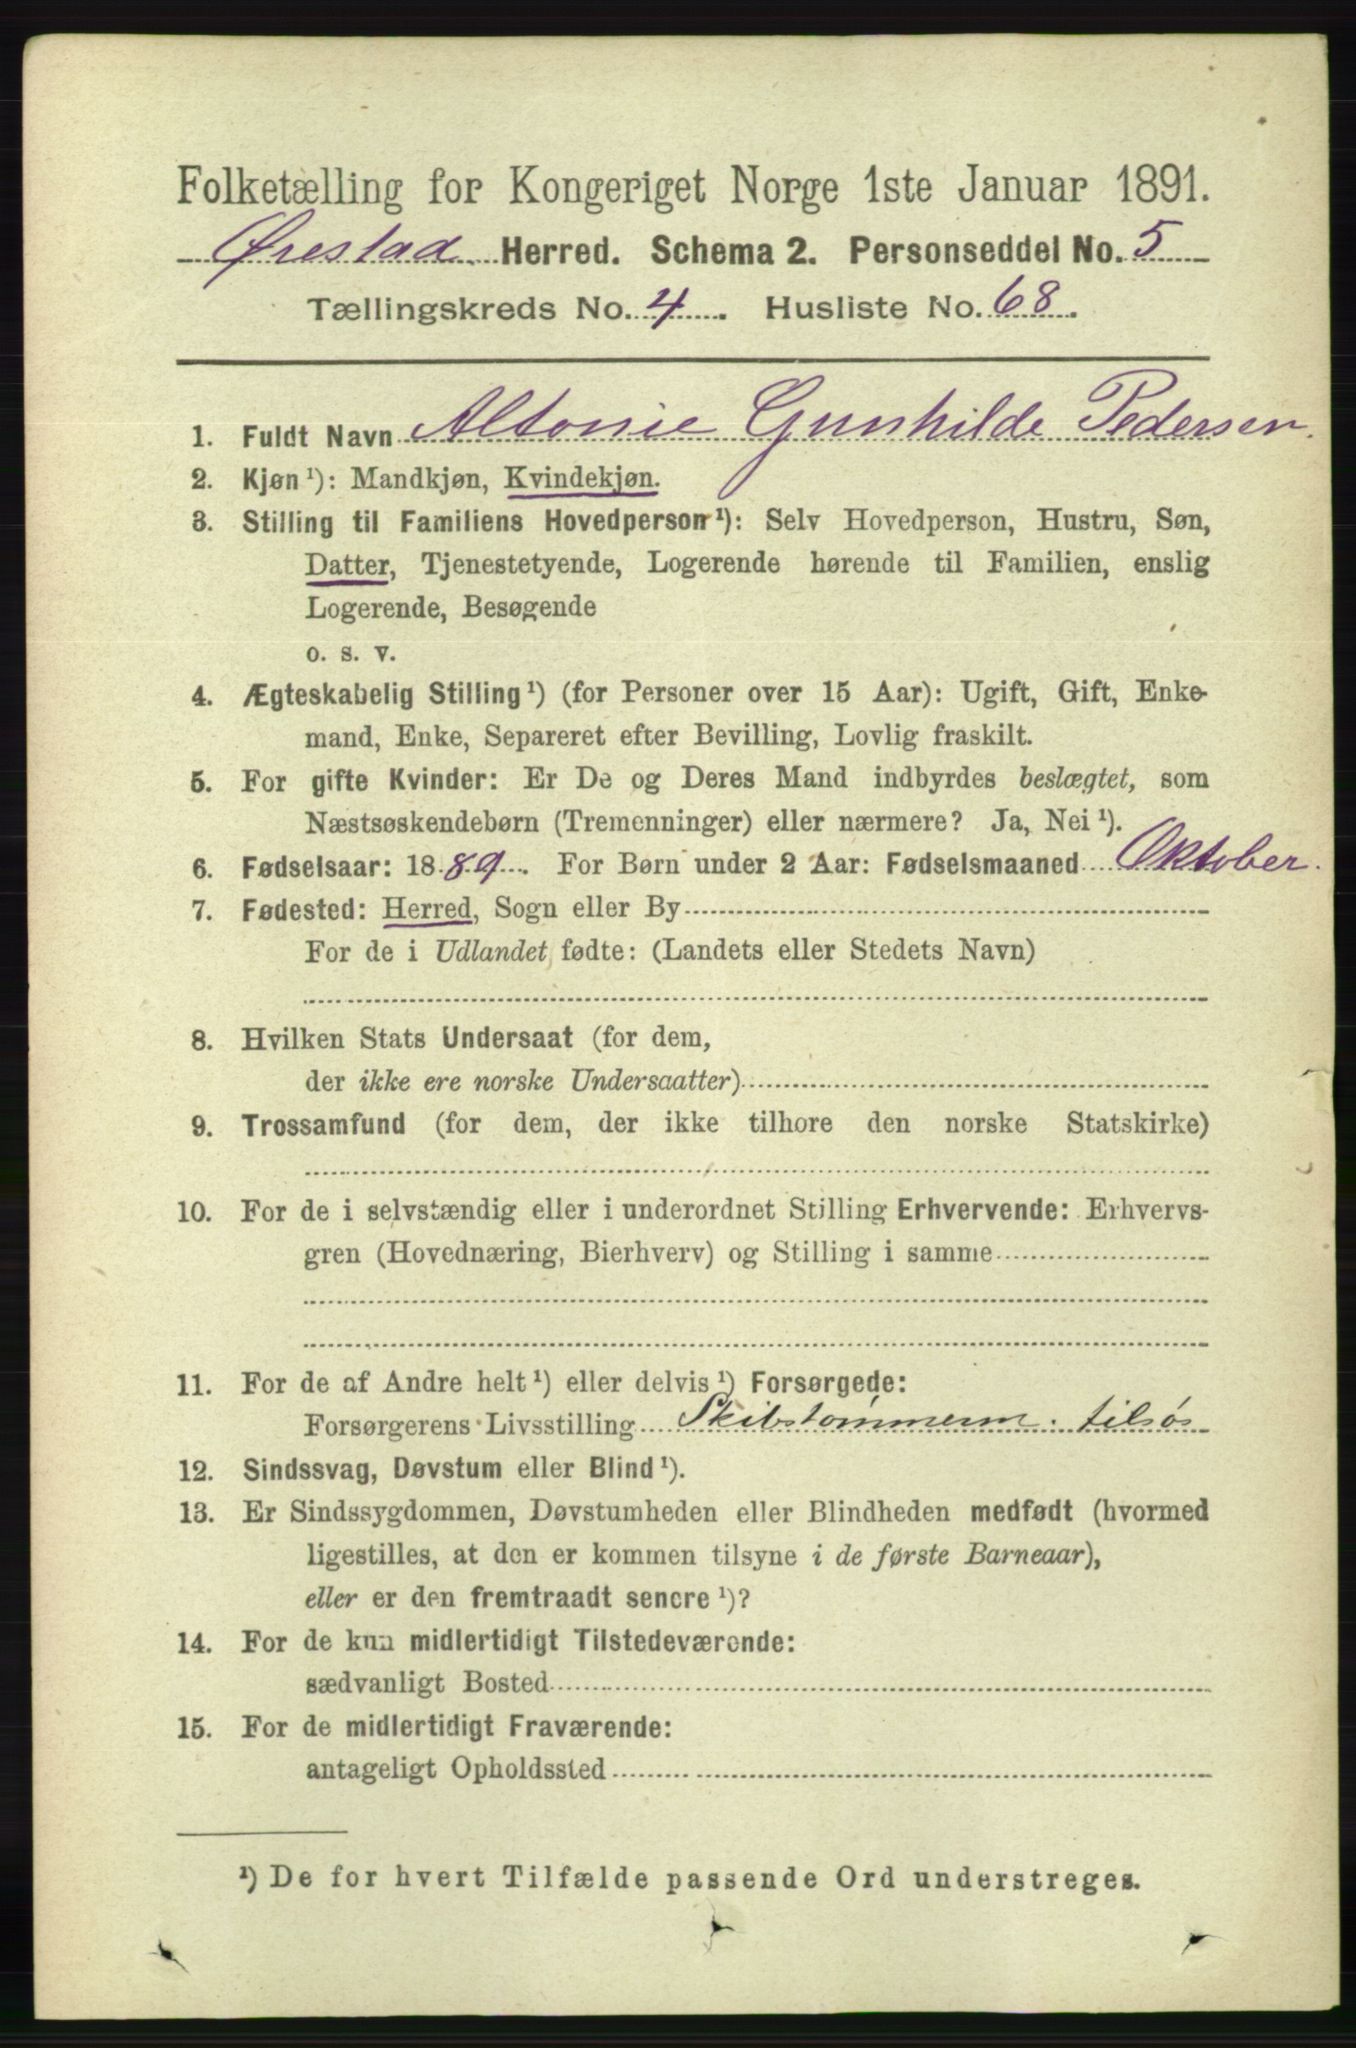 Folketælling for Kongeriget Norge 1ste Januar 1891.
Ørestad Herred. Schema 2. Personseddel No. 5
Tællingskreds No. 4. Husliste No. 68.
1. Fuldt Navn Altonie Gunhilde Pedersen.
2. Kjøn¹): Mandkjøn, Kvindekjøn.
3. Stilling til Familiens Hovedperson¹): Selv Hovedperson, Hustru, Søn,
Datter, Tjenestetyende, Logerende hørende til Familien, enslig
Logerende, Besøgende
o. s. v.
4. Ægteskabelig Stilling¹) (for Personer over 15 Aar): Ugift, Gift, Enke-
mand, Enke, Separeret efter Bevilling, Lovlig fraskilt.
5. For gifte Kvinder: Er De og Deres Mand indbyrdes beslægtet, som
Næstsøskendebørn (Tremenninger) eller nærmere? Ja, Nei¹).
6. Fødselsaar: 1889. For Børn under 2 Aar: Fødselsmaaned Oktober.
7. Fødested: Herred, Sogn eller By
For de i Udlandet fødte: (Landets eller Stedets Navn)
8. Hvilken Stats Undersaat (for dem,
der ikke ere norske Undersaatter)
9. Trossamfund (for dem, der ikke tilhøre den norske Statskirke)
10. For de i selvstændig eller i underordnet Stilling Erhvervende: Erhvervs-
gren (Hovednæring, Bierhverv) og Stilling i samme
11. For de af Andre helt¹) eller delvis¹) Forsørgede:
Forsørgerens Livsstilling Skibstømmerm. tilsøs
12. Sindssvag, Døvstum eller Blind¹).
13. Er Sindssygdommen, Døvstumheden eller Blindheden medfødt (hvormed
ligestilles, at den er kommen tilsyne i de første Barneaar),
eller er den fremtraadt senere¹)?
14. For de kun midlertidigt Tilstedeværende:
sædvanligt Bosted
15. For de midlertidigt Fraværende:
antageligt Opholdssted
¹) De for hvert Tilfælde passende Ord understreges.